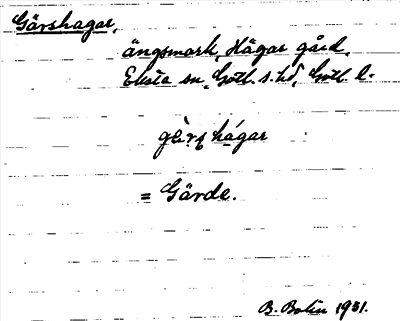 Gärshagar,
ängsmark, Hägar gård,
Eksta sn, Gotl. s. hd, Gotl. l.
hágar
= Gärde.
B. Bolin 1931.